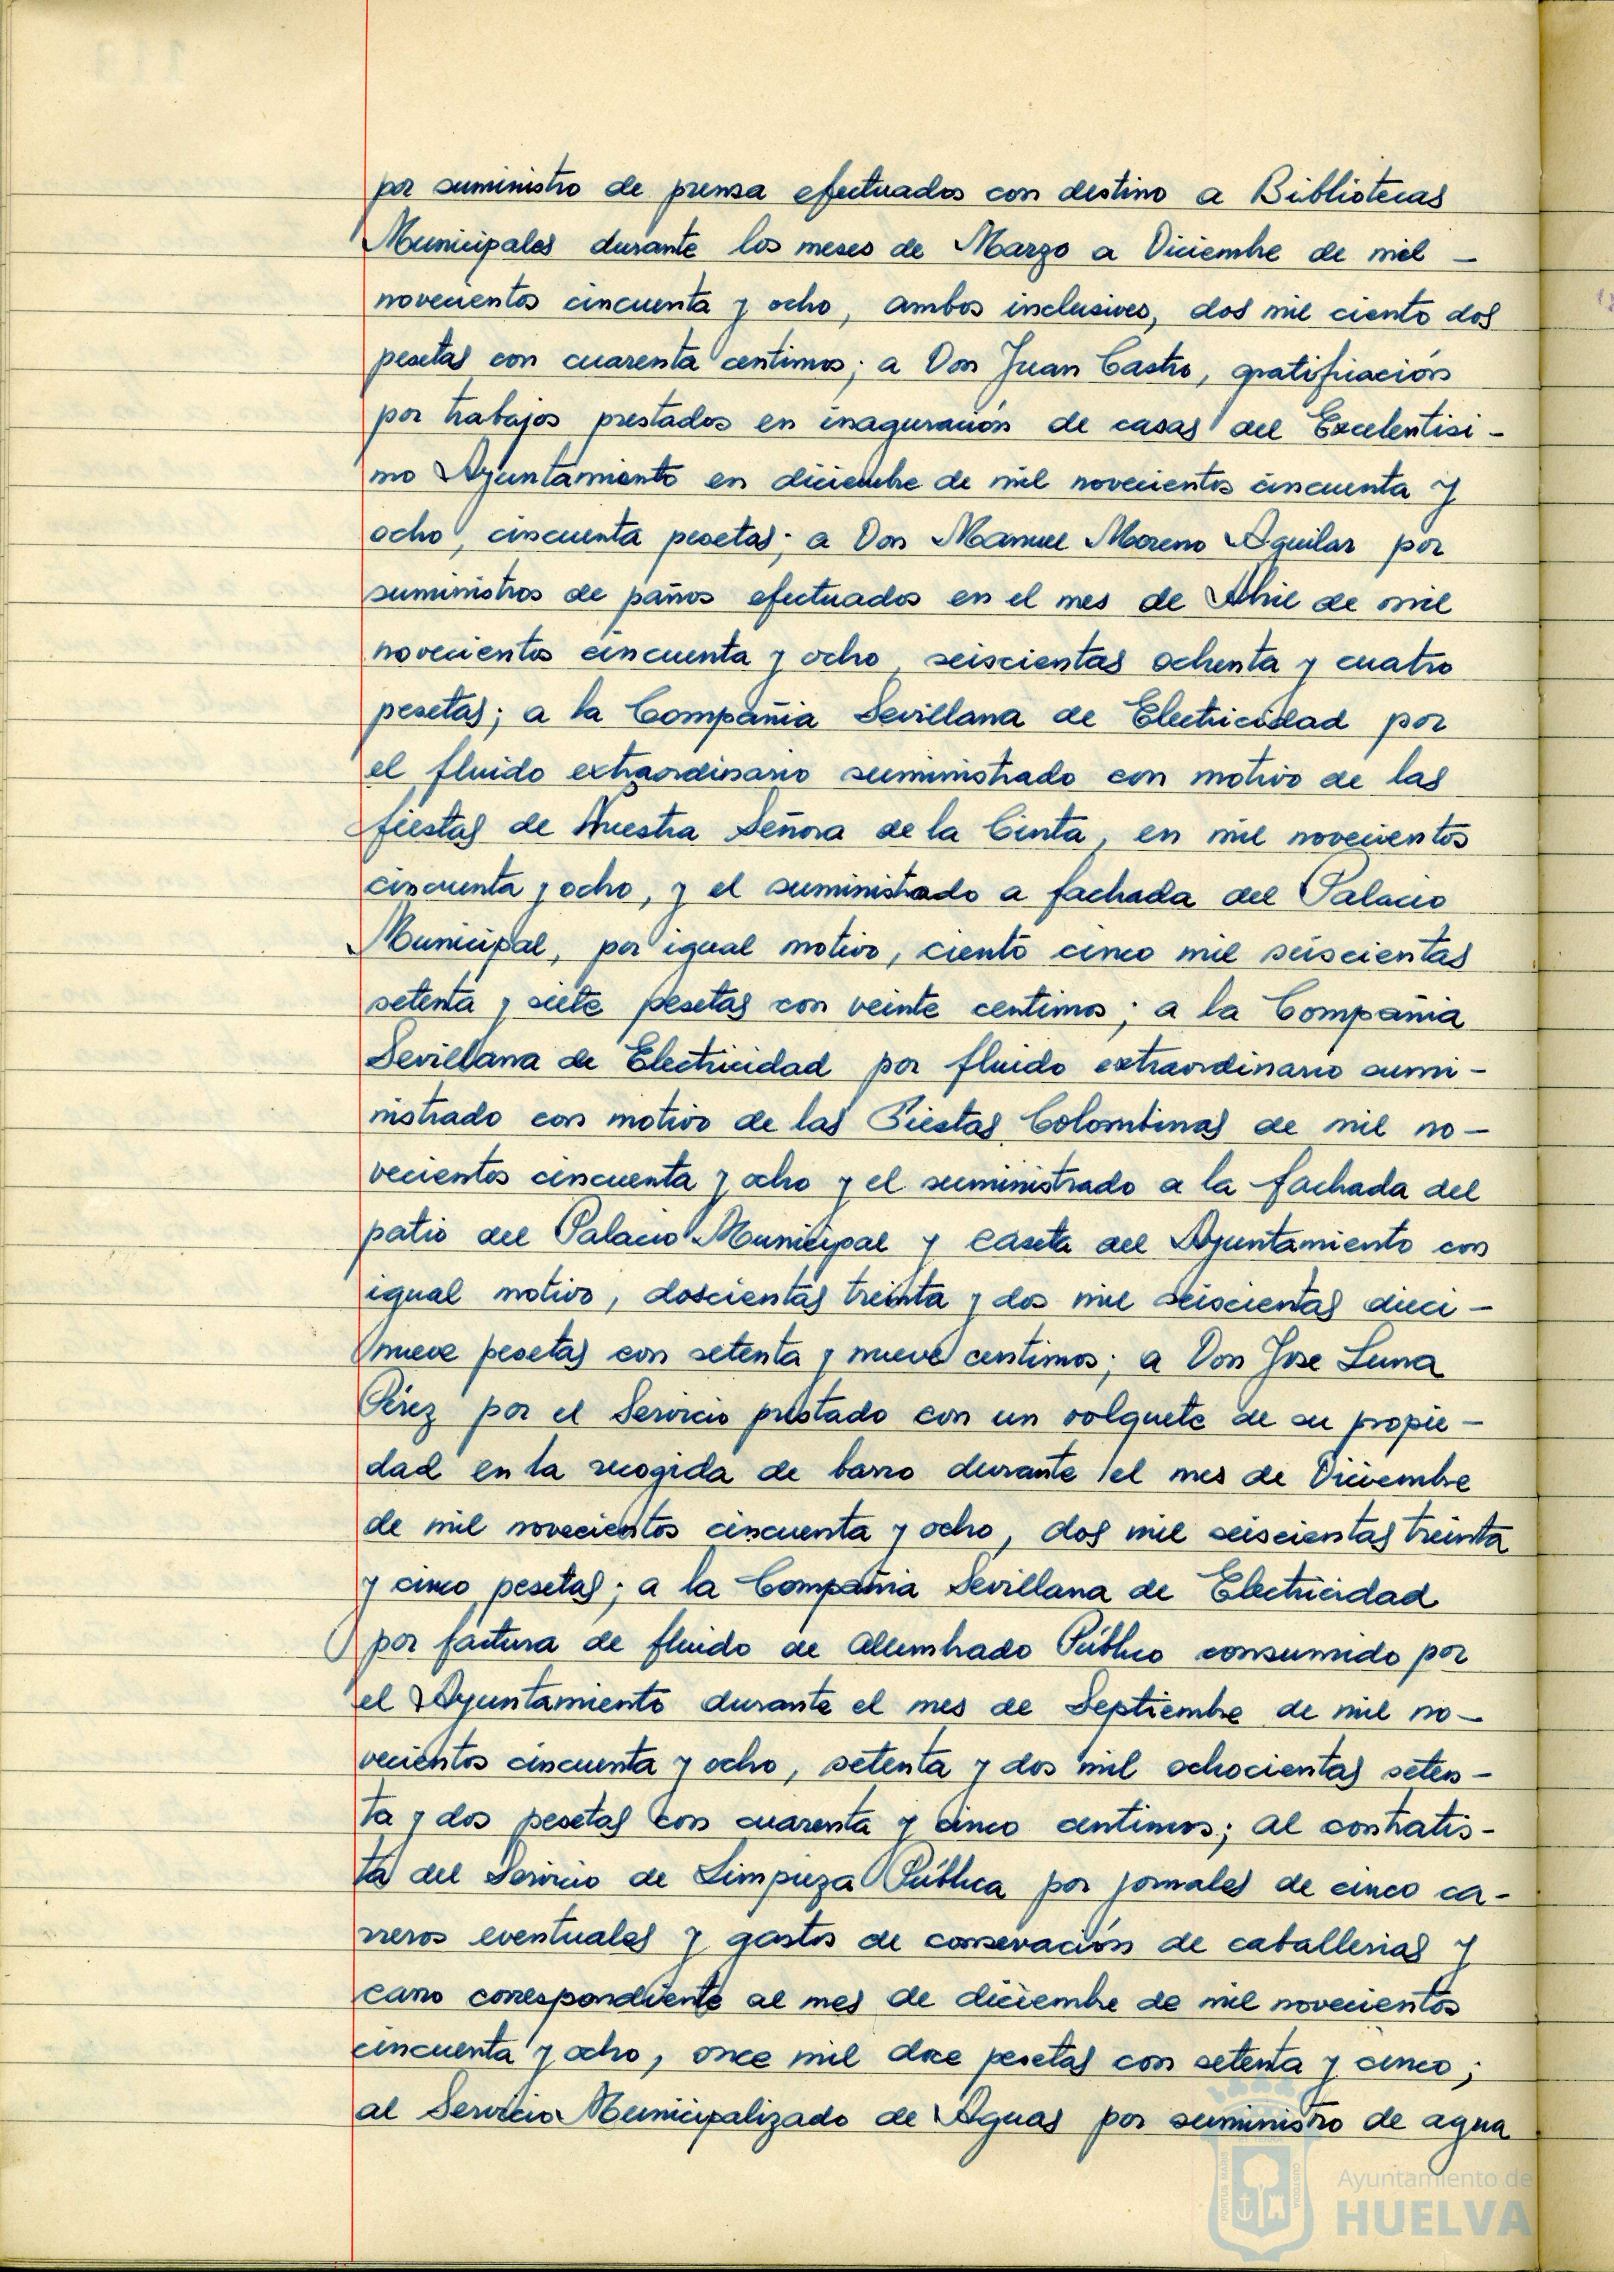 por suministro de prensa efectuados con destino a Bibliotecas
Municipales durante los meses de Marzo a Diciembre de mil -
novecientos cincuenta y ocho, ambos inclusives, dos mil ciento dos
pesetas con cuarenta centimos; a Don Juan Castro, gratificación
por trabajos prestados en inaguración de casas del Excelentisi-
mo Ayuntamiento en diciembre de mil novecientos cincuenta y
ocho, cincuenta pesetas; a Don Manuel Moreno Aguilar por
suministros de paños efectuados en el mes de Abril de mil
novecientos cincuenta y ocho, seiscientas ochenta y cuatro
pesetas; a la Compañia Sevillana de Electricidad por
el fluido extraordinario suministrado con motivo de las
fiestas de Nuestra Señora de la Cinta, en mil novecientos
cincuenta y ocho, y el suministrado a fachada del Palacio
Municipal, por igual motivo, ciento cinco mil seiscientas
setenta y siete pesetas con veinte centimos; a la Compañia
Sevillana de Electricidad por fluido extraordinario sumi-
nistrado con motivo de las Fiestas Colombinas de mil no-
vecientos cincuenta y ocho y el suministrado a la fachada del
patio del Palacio Municipal y caseta del Ayuntamiento con
igual motivo, doscientas treinta y dos mil seiscientas dieci-
nueve pesetas con setenta y nueve centimos; a Don Jose Luna
Pérez por el Servicio prestado con un volquete de su propie-
dad en la recogida de barro durante el mes de Diciembre
de mil novecientos cincuenta y ocho, dos mil seiscientas treinta
y cinco pesetas; a la Compañia Sevillana de Electricidad
por factura de fluido de alumbrado Público consumido por
el Ayuntamiento durante el mes de Septiembre de mil no-
vecientos cincuenta y ocho, setenta y dos mil ochocientas seten-
ta y dos pesetas con cuarenta y cinco centimos; al contratis-
ta del Servicio de Limpieza Pública por jornales de cinco ca-
rreros eventuales y gastos de conservación de caballerias y
carro correspondiente al mes de diciembre de mil novecientos
cincuenta y ocho, once mil doce pesetas con setenta y cinco;
al Servicio Municipalizado de Aguas por suministro de agua
Ayuntamiento de
HUELVA
PORTUS MARIS
CUSTODIA